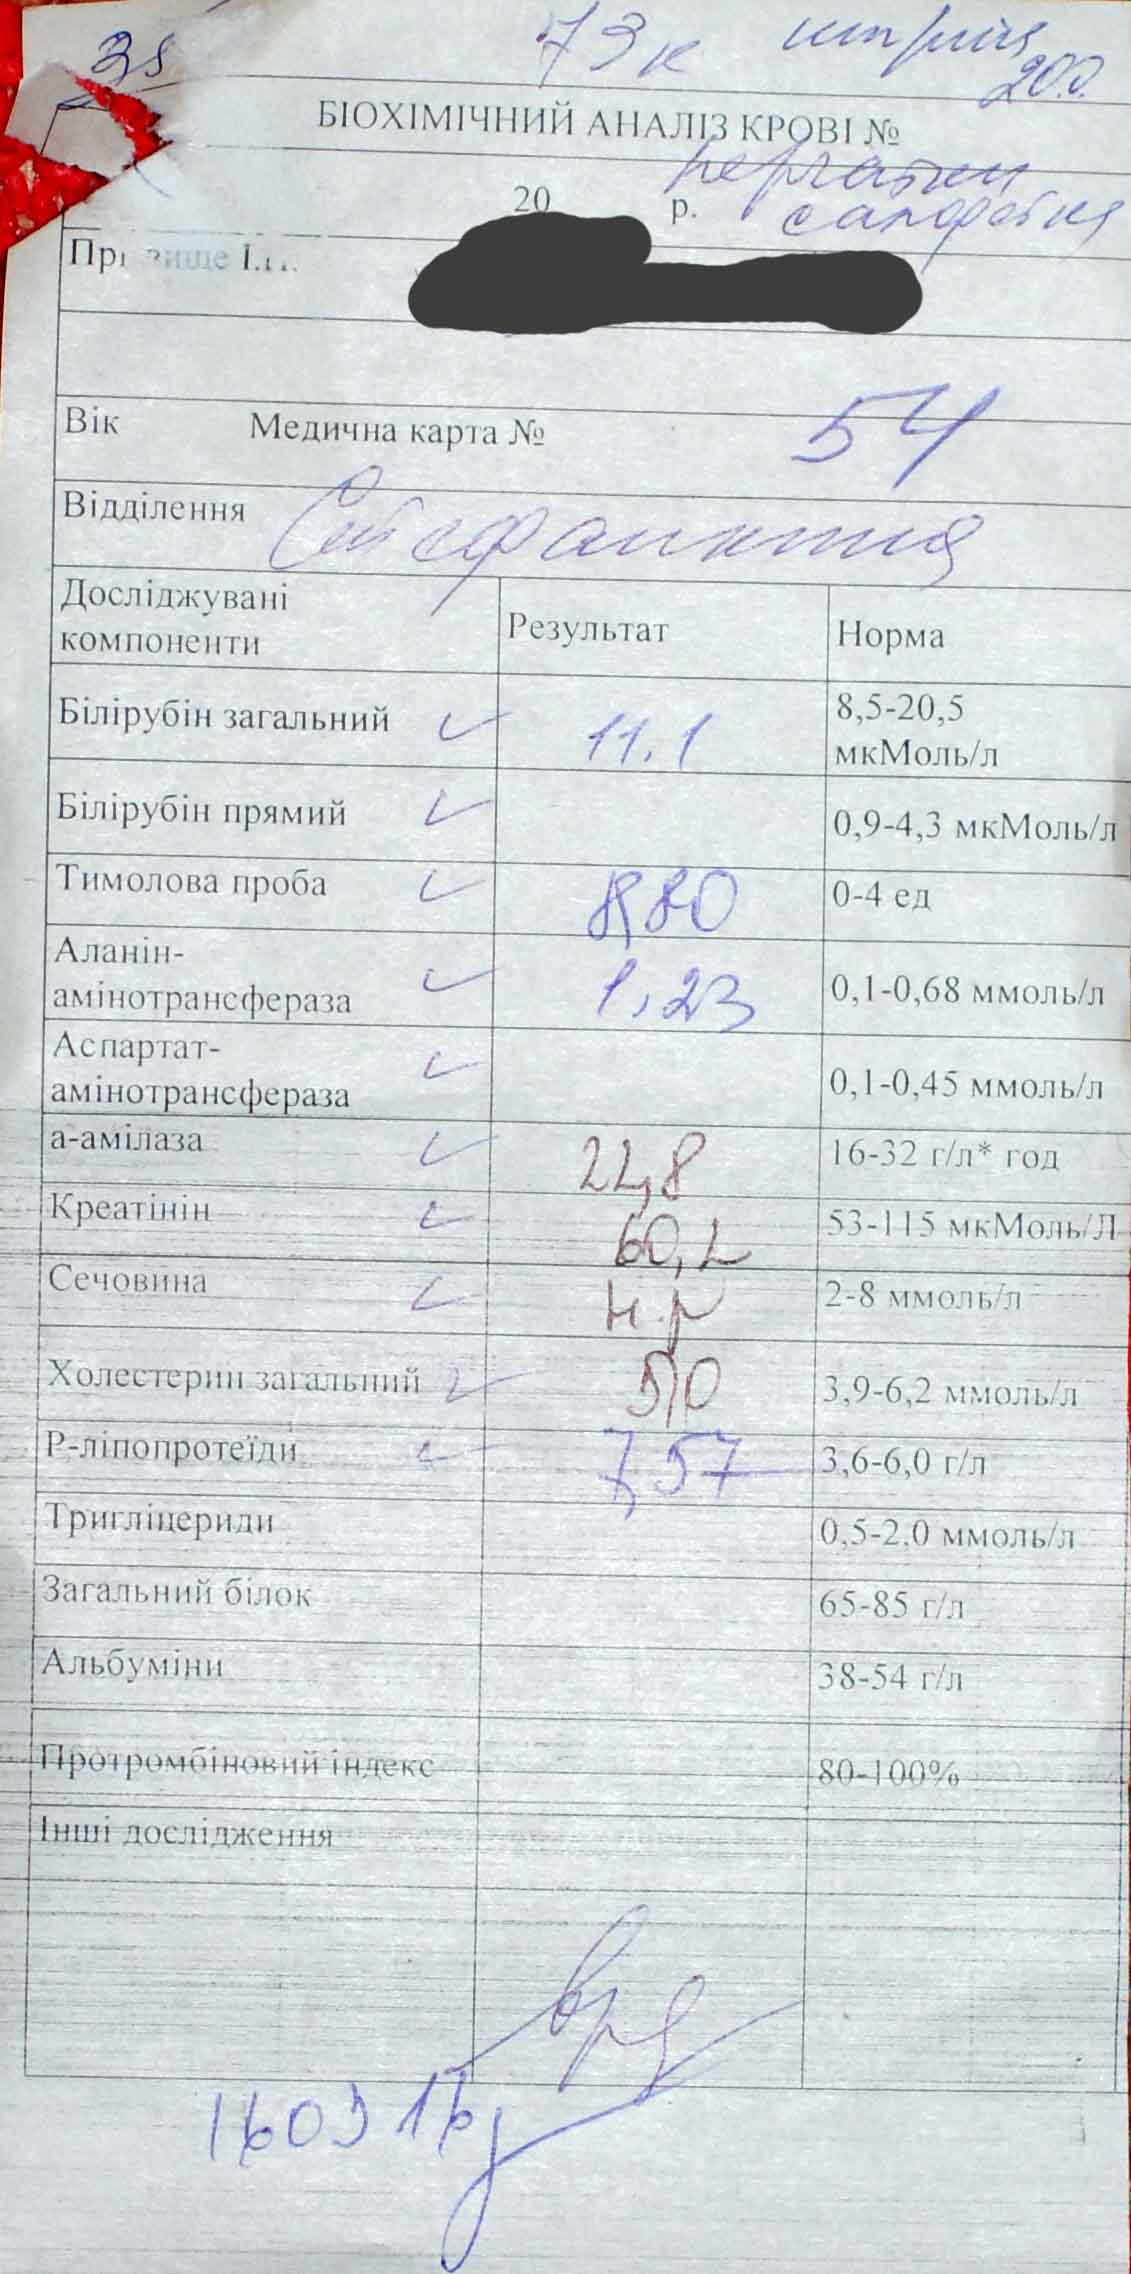 73к шприц
20.0.
БІОХІМІЧНИЙ АНАЛІЗ КРОВІ №
перчатки
20 р. салфетка
І.П.
Вік Медична карта № 54
Відділення
Досліджувані компоненти Результат Норма
Білірубін загальний 11.1 8,5-20,5 мкМоль/л
Білірубін прямий 0,9-4,3 мкМоль/л
Тимолова проба 8,80 0-4 ед
Аланін-амінотрансфераза 1,23 0,1-0,68 ммоль/л
Аспартат-амінотрансфераза 0,1-0,45 ммоль/л
а-амілаза 22,8 16-32 г/л* год
Креатінін 60,2 53-115 мкМоль/Л
Сечовина н.р 2-8 ммоль/л
Холестерин загальний 5,0 3,9-6,2 ммоль/л
Р-ліпопротеїди 7,57 3,6-6,0 г/л
Тригліцериди 0,5-2.0 ммоль/л
Загальний білок 65-85 г/л
Альбуміни 38-54 г/л
Протромбіновий індекс 80-100%
Інші дослідження
160316